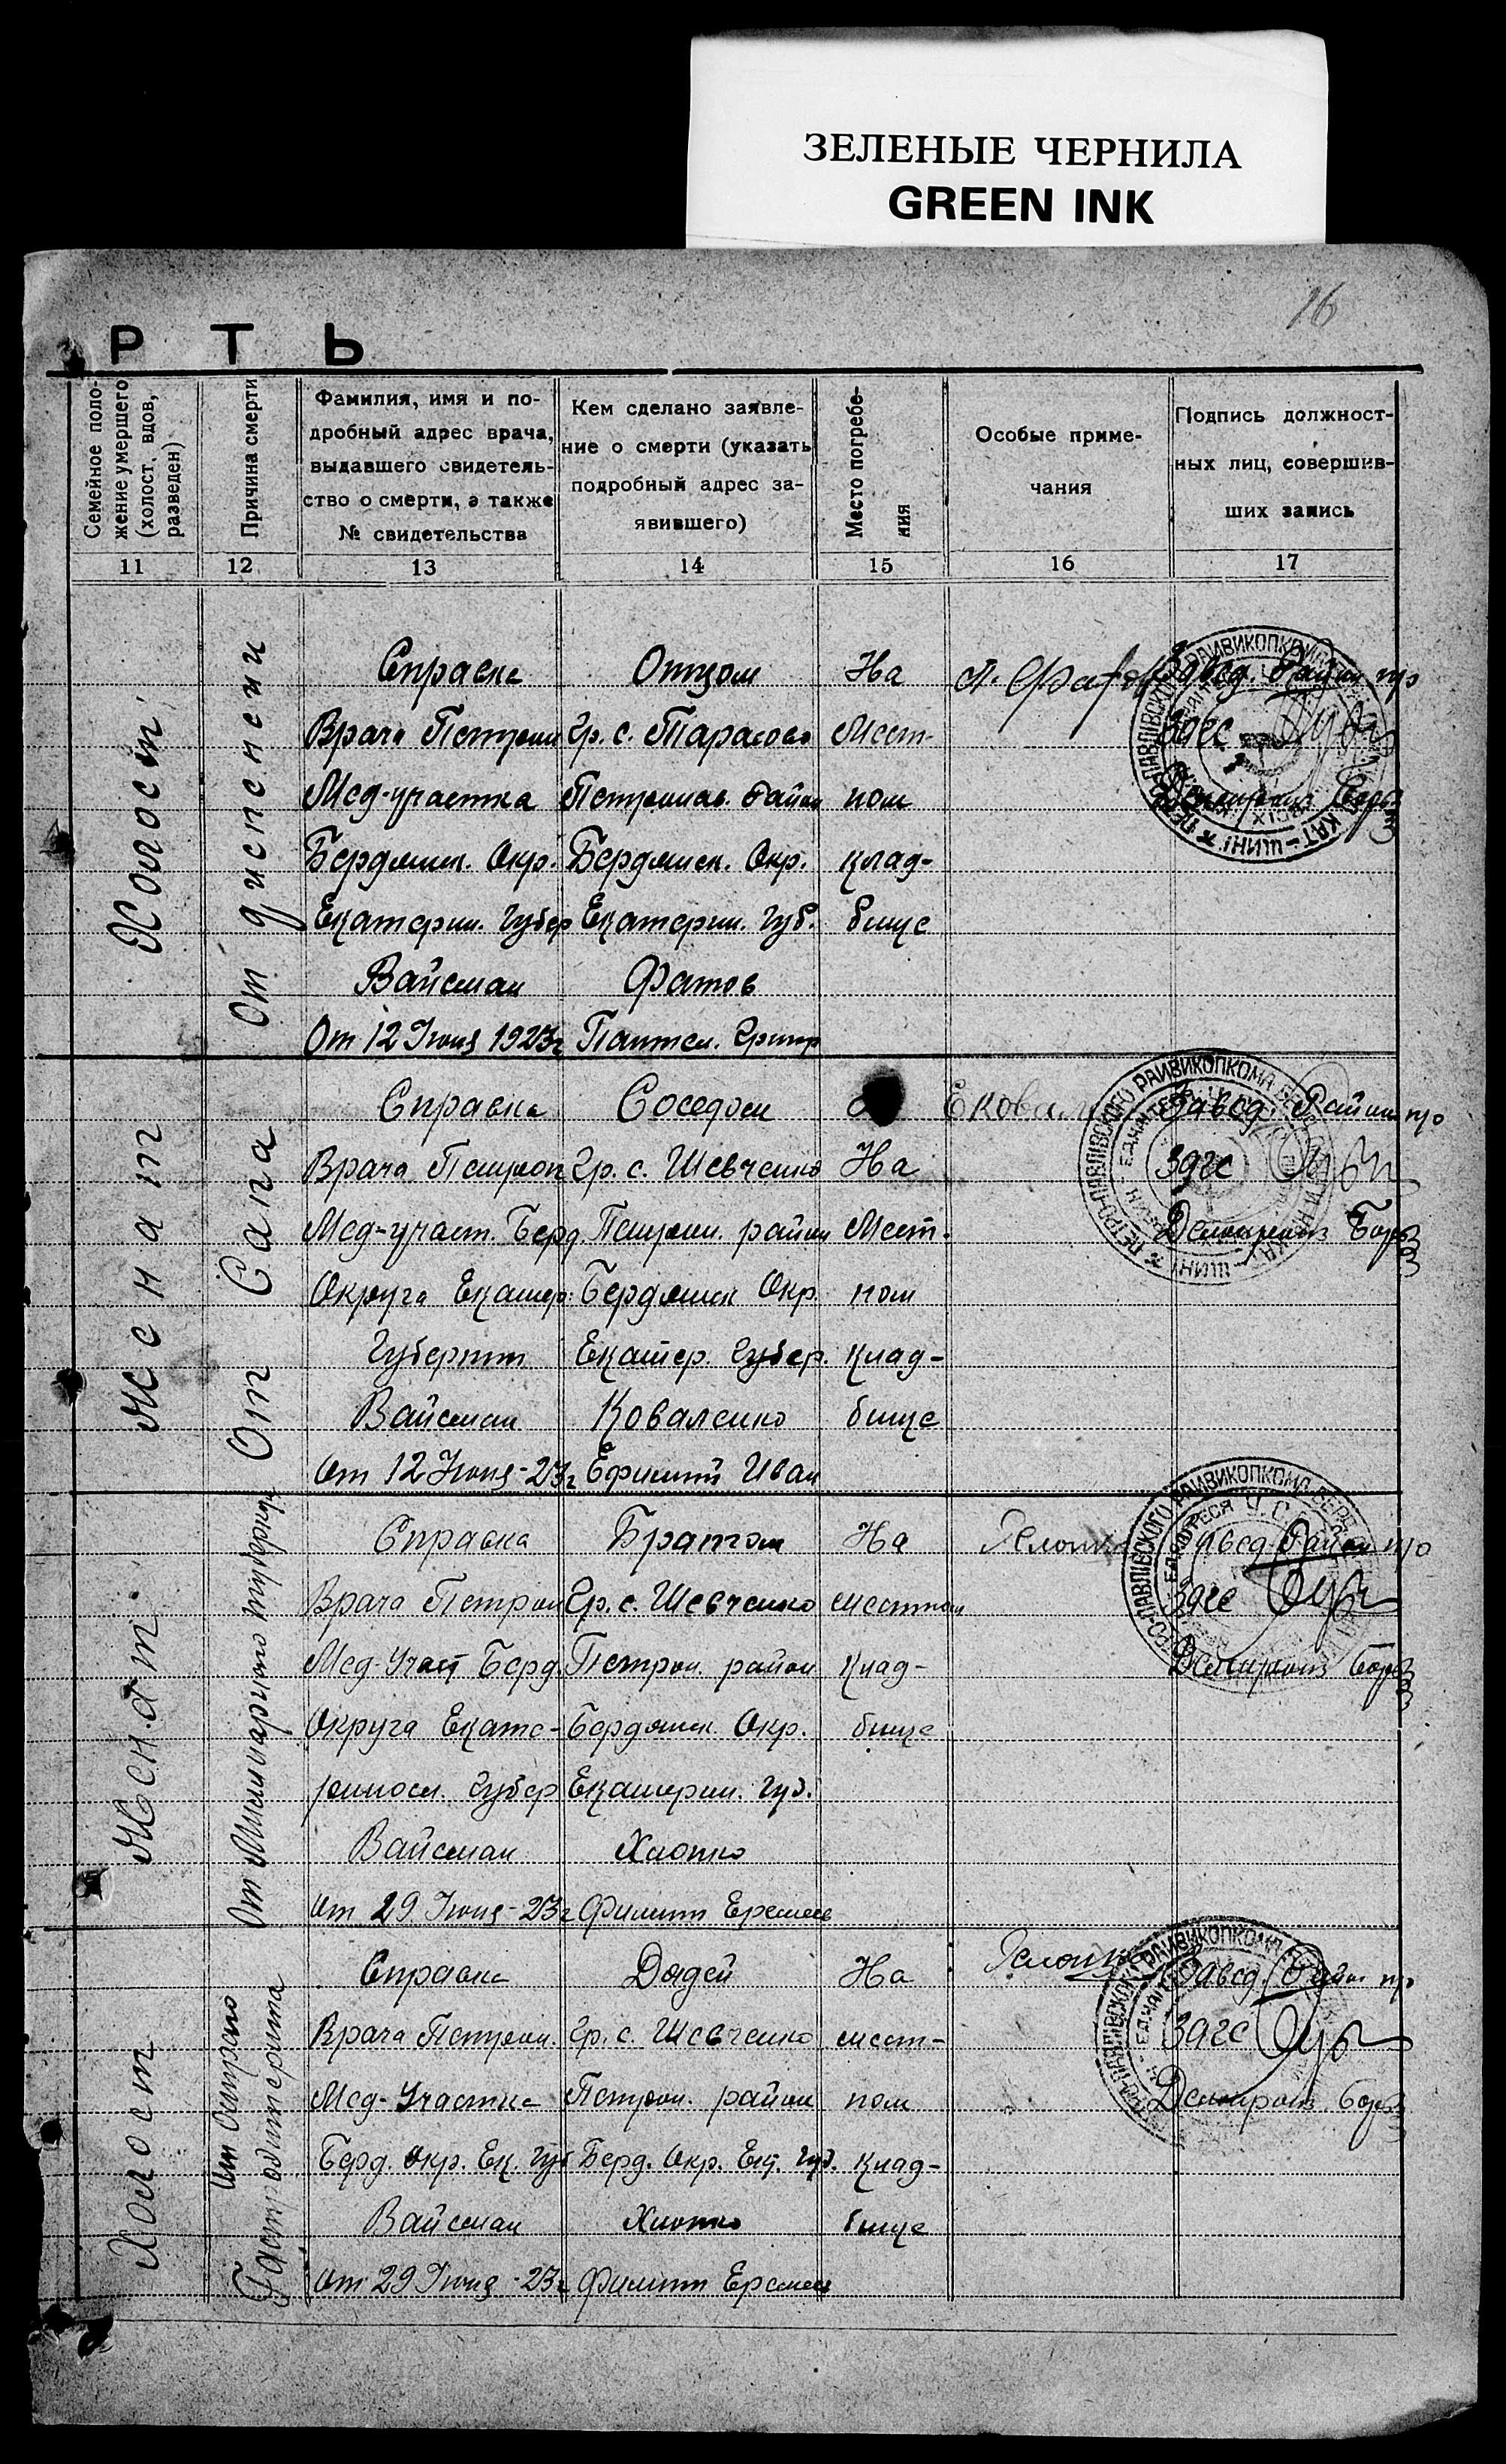 ЗЕЛЕНЫЕ ЧЕРНИЛА
GREEN INK
16
Р Т Ь
Семейное поло-
жение умершего
(холост, вдов,
разведен)
Причина смерти
Фамилия, имя и по-
дробный адрес врача,
выдавшего свидетель-
ство о смерти, а также
№ свидетельства
Кем сделано заявле-
ние о смерти (указать
подробный адрес за-
явившего)
Место погребе-
ния
Особые приме-
чания
Подпись должност-
ных лиц, совершив-
ших запись
11 12 13 14 15 16 17
Холост
От диспенсии
Справка
Врача Петропав
Мед-участка
Бердянск. Окр.
Екатерин. Губер
Вайсман
От 12 Июня 1923г
Отцом
Гр. с. Тарасово
Петропав. Район
Бердянск. Окр.
Екатерин. Губ.
Фатов
Пантел. Григор
На
Мест-
ном
клад-
бище
Завед. Район
Загс
Женат
От Сапа
Справка
Врача Петроп
Мед-участ. Берд.
Округа Екатер.
Губернии
Вайсман
От 12 Июня-23г
Соседом
Гр. с. Шевченко
Петропав. район
Бердянск Окр.
Екатер. Губер.
Коваленко
Ефимий Иван
На
Мест-
ном
клад-
бище
Завед. Район
Загс
Женат.
От Миллиарного туберкул
Справка
Врача Петроп
Мед-Участ Берд.
Округа Екате-
риносл. Губер
Вайсман
От 29 Июня-23г
Братом
Гр. с. Шевченко
Петроп. район
Бердянск. Окр.
Екатерин. Губ.
Филипп
На
местном
клад-
бище
Завед. Район
Загс
Холост
От Острого
Гастроэнтерита
Справка
Врача Петропав.
Мед-Участка
Берд. окр. Ек. Губ
Вайсман
От 29 Июня-23г
Дядей
Гр. с. Шевченко
Петроп. район
Берд. Окр. Ек. Губ.
Филипп
На
мест-
ном
клад-
бище
Завед. Район
Загс